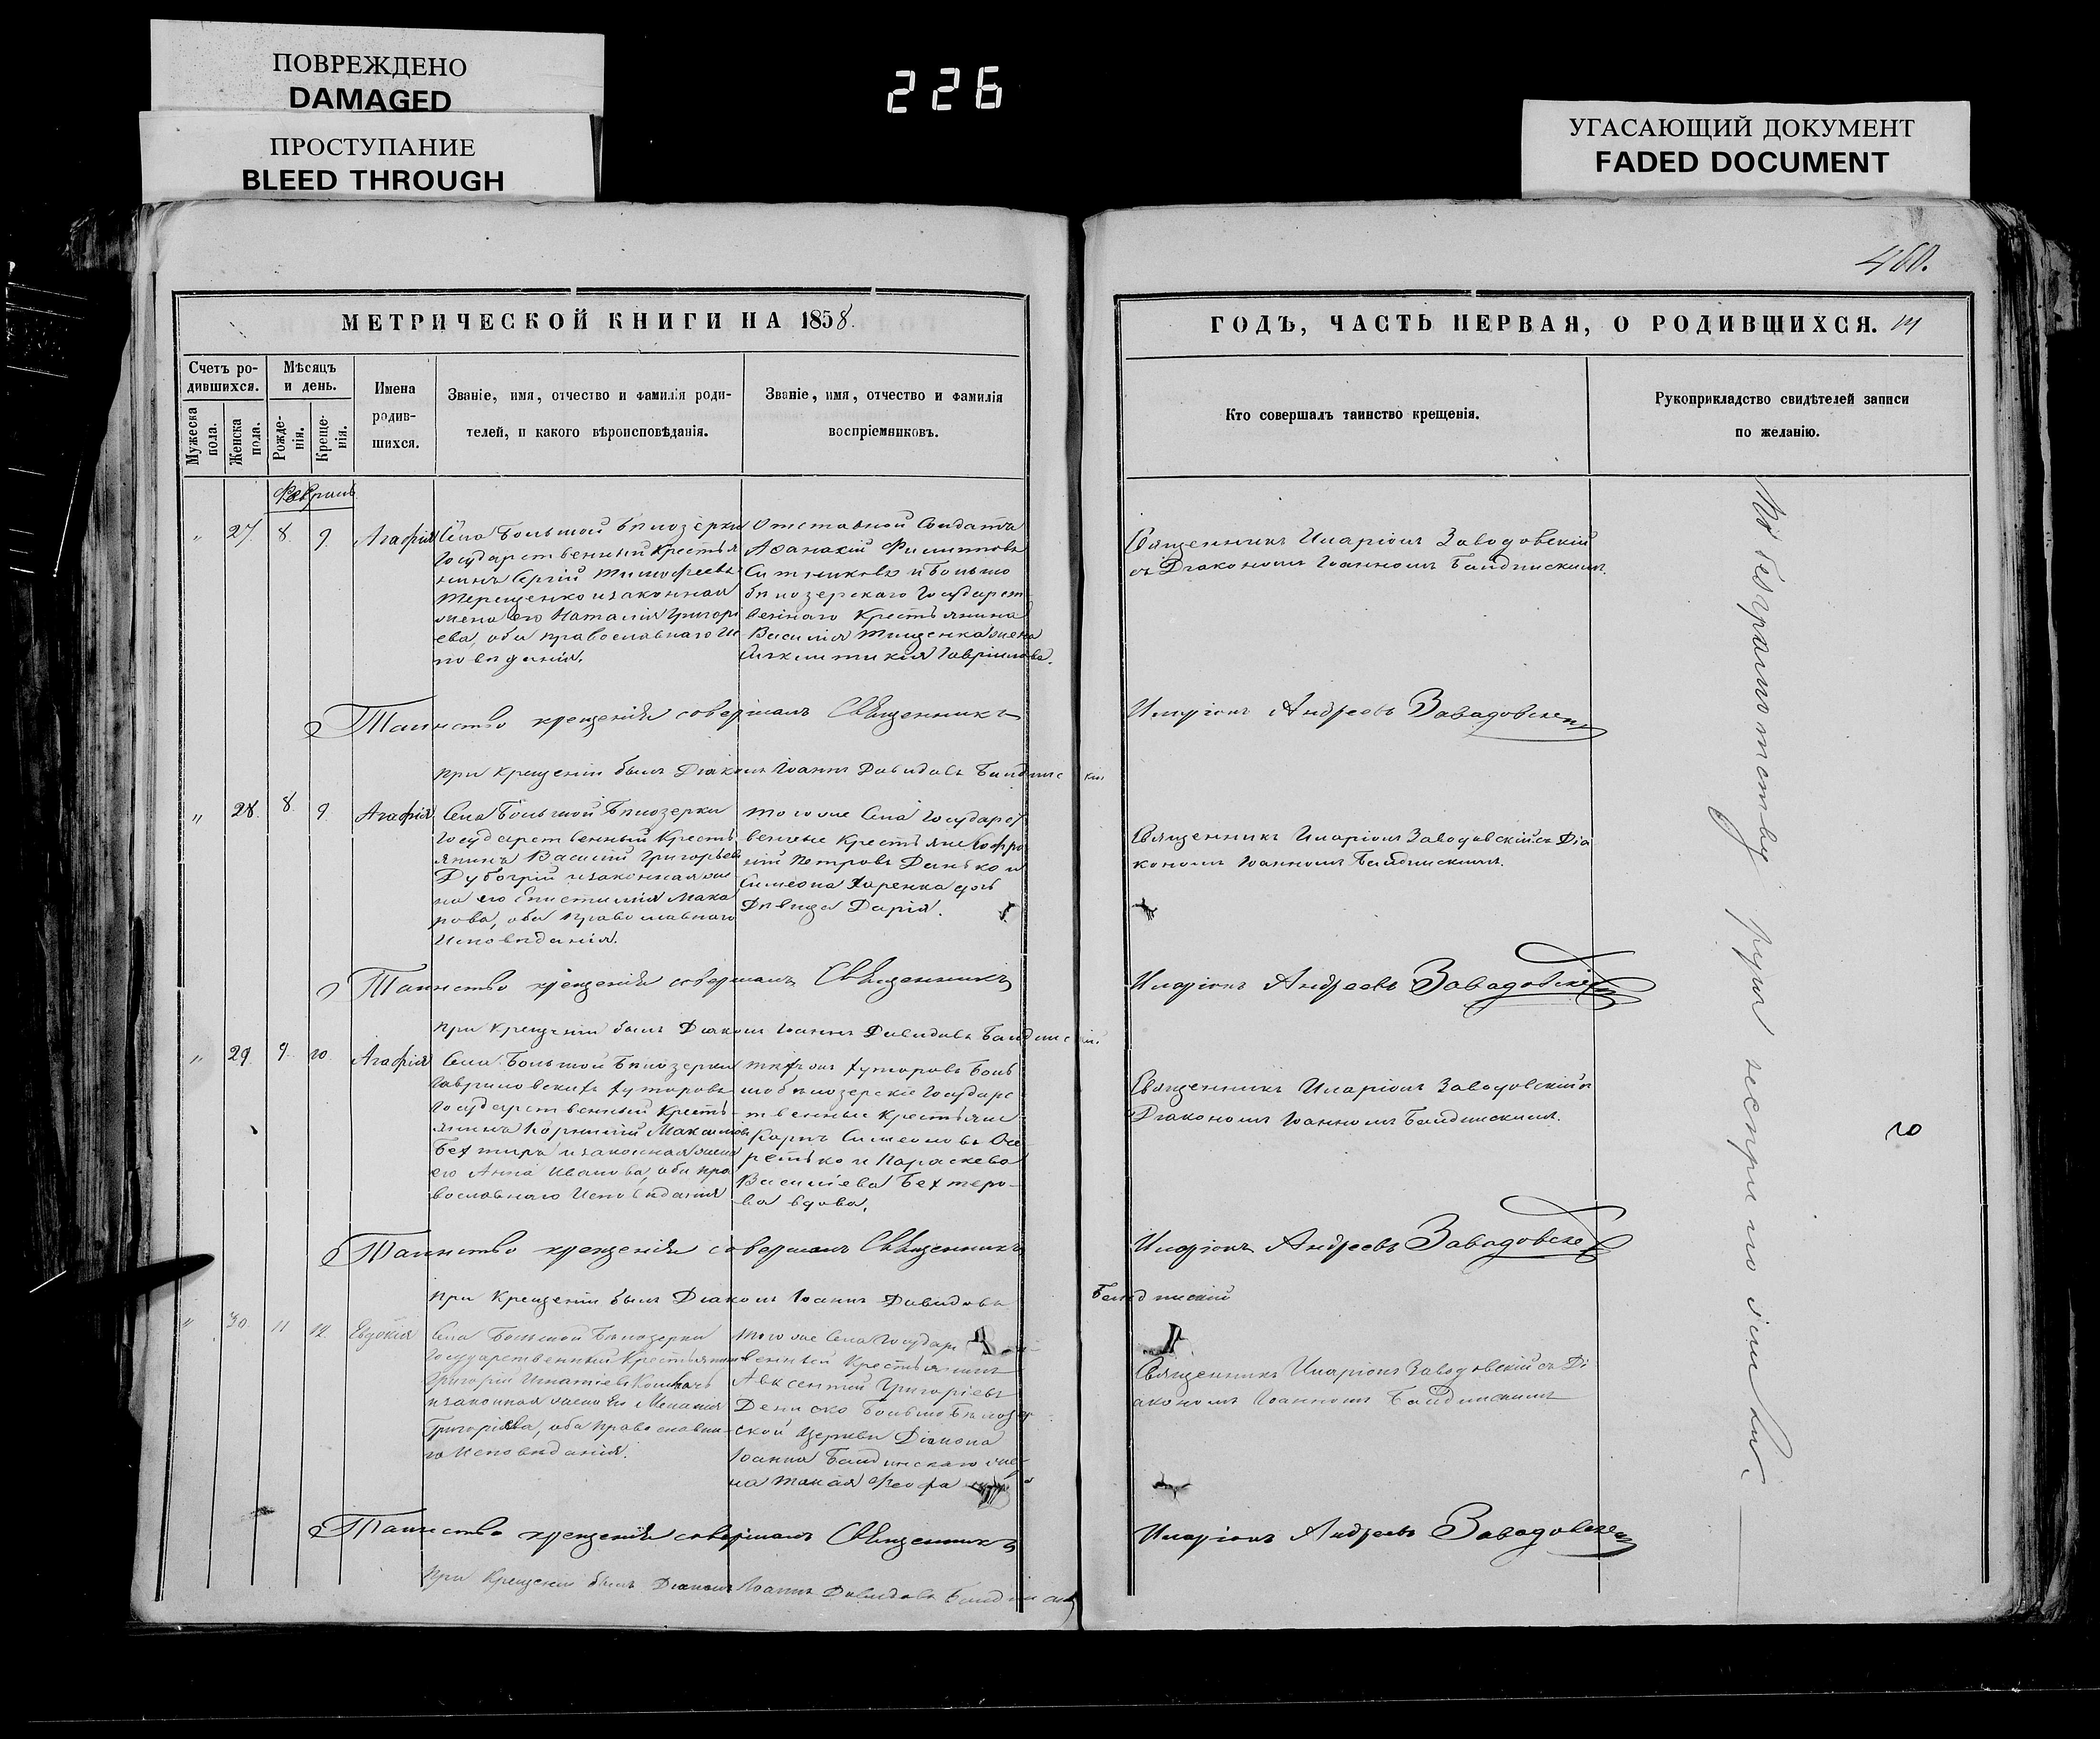 ПОВРЕЖДЕНО
DAMAGED
ПРОСТУПАНИЕ
BLEED THROUGH
226
УГАСАЮЩИЙ ДОКУМЕНТ
FADED DOCUMENT
460.
МЕТРИЧЕСКОЙ КНИГИ НА 1858.
Счетъ ро-
дившихся.
Мужеска
пола.
Женска
пола.
Мѣсяцъ
и день.
Рожде-
нія.
Креще-
нія.
Имена
родив-
шихся.
Званіе, имя, отчество и фамилія роди-
телей, и какого вѣроисповѣданія.
Званіе, имя, отчество и фамилія
воспріемниковъ.
ГОДЪ, ЧАСТЬ ПЕРВАЯ, О РОДИВШИХСЯ.
Кто совершалъ таинство крещенія.
Рукоприкладство свидѣтелей записи
по желанію.
Февраль
" 27. 8. 9. Агафія
Села Большой Бѣлозерки
Государственный Крестья
нинъ Сергій Тимофеевъ
Терещенко и законная
жена его Наталія Григорі
ева, оба православнаго Ис
повѣданія.
Отставной Солдатъ
Аѳанасій Филипповъ
Ситниковъ и Больше
бѣлозерскаго Государст
веннаго Крестьянина
Василія Тищенка жена
Гавріилова.
Священникъ Иларіонъ Заводовскій
съ Діакономъ Іоанномъ Байдинскимъ.
Таинство крещенія совершалъ Священникъ
Иларіонъ Андреевъ Завадовскій
при Крещеніи былъ Діаконъ Іоаннъ Давидовъ Байдинскій
" 28. 8. 9. Агафія
Села Большой Бѣлозерки
Государственный Кресть
янинъ Василій Григорьевъ
и законная же
на его Епистимія Мака
рова, оба православнаго
Исповѣданія.
того же Села Государст
венные Крестьяне Софро
ній Петровъ Данько и
Симеона Харенка дочь
Дѣвица Дарія.
Священникъ Иларіонъ Заводовскій съ Діа
кономъ Іоанномъ Байдинскимъ.
Таинство крещенія совершалъ Священникъ
Иларіонъ Андреевъ Завадовскій
при Крещеніи былъ Діаконъ Іоаннъ Давидовъ Байдинскій
" 29. 9. 10. Агафія
Села Большой Бѣлозерки
Гавриловскихъ Хуторовъ
Государственный Кресть-
янинъ Корнилій Максимовъ
Бехтиръ и законная жена
его Анна Иванова, оба пра
вославнаго Исповѣданія
тѣхъ же Хуторовъ Боль
шобѣлозерскіе Государс
твенные Крестьяне
Карпъ Симеоновъ Оче
ретько и Параскева
Василіева Бехтеро-
ва вдова.
Священникъ Иларіонъ Заводовскій съ
Діакономъ Іоанномъ Байдинскимъ.
Таинство крещенія совершалъ Священникъ
Иларіонъ Андреевъ Завадовскій
при Крещеніи былъ Діаконъ Іоаннъ Давидовъ
Байдинскій
" 30. 11 12. Евдокія
Села Большой Бѣлозерки
Государственный Крестьянинъ
Григорій Игнатіевъ
и законная жена Его Меланія
Григоріева, оба православна-
го Исповѣданія.
того же Села Государ
венный Крестьянинъ
Авксентій Григоріевъ
Дениско Больше Бѣлозер
ской Церкви Діакона
Іоанна Байдинскаго же
на
Священникъ Иларіонъ Заводовскій съ Ді
акономъ Іоанномъ Байдинскимъ
Таинство крещенія совершалъ Священникъ
Иларіонъ Андреевъ Завадовскій
при Крещеніи былъ Діаконъ Іоаннъ Давидовъ Байдинскій